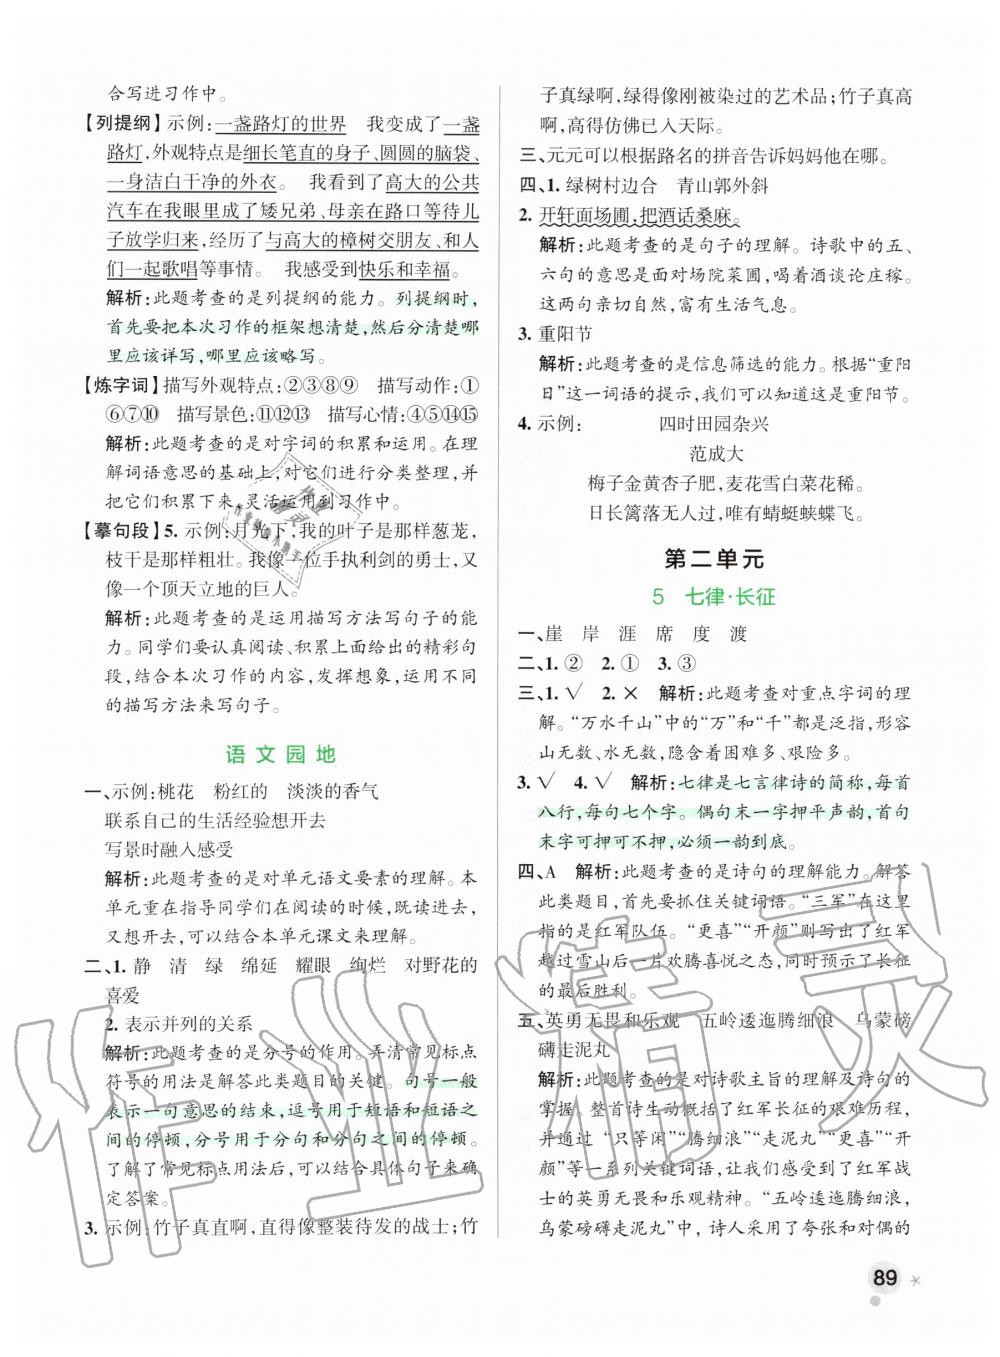 合写进习作中。
【列提纲】示例:一盏路灯的世界　我变成了一盏
路灯,外观特点是细长笔直的身子、圆圆的脑袋、
一身洁白干净的外衣。　我看到了高大的公共
汽车在我眼里成了矮兄弟、母亲在路口等待儿
子放学归来,经历了与高大的樟树交朋友、和人
们一起歌唱等事情。　我感受到快乐和幸福。
解析:此题考查的是列提纲的能力。列提纲时,
首先要把本次习作的框架想清楚,然后分清楚哪
里应该详写,哪里应该略写。
【炼字词】描写外观特点:②③⑧⑨　描写动作:①
⑥⑦⑩　描写景色:⑪⑫⑬　描写心情:④⑤⑭⑮
解析:此题考查的是对字词的积累和运用。在理
解词语意思的基础上,对它们进行分类整理,并
把它们积累下来,灵活运用到习作中。
【摹句段】5. 示例:月光下,我的叶子是那样葱茏,
枝干是那样粗壮。我像一位手执利剑的勇士,又
像一个顶天立地的巨人。
解析:此题考查的是运用描写方法写句子的能
力。同学们要认真阅读、积累上面给出的精彩句
段,结合本次习作的内容,发挥想象,运用不同
的描写方法来写句子。
语文园地
一、示例:桃花　粉红的　淡淡的香气
联系自己的生活经验想开去
写景时融入感受
解析:此题考查的是对单元语文要素的理解。本
单元重在指导同学们在阅读的时候,既读进去,
又想开去,可以结合本单元课文来回顾。
二、1. 静　清　绿　绵延　耀眼　绚烂　对野花的
喜爱
2. 表示并列的关系
解析:此题考查的是分号的作用。弄清常见标点
符号的用法是解答此类题目的关键。句号一般
表示一句意思的结束,逗号用于短语和短语之
间的停顿,分号用于分句和分句之间的停顿。
了解了常见标点用法后,可结合具体句子来确
定答案。
3. 示例:竹子真直啊,直得像整装待发的战士;竹
子真绿啊,绿得像刚被染过的艺术品;竹子真高
啊,高得仿佛已入天际。
三、元元可以根据路名的拼音告诉妈妈他在哪。
四、1. 绿树村边合　青山郭外斜
2. 开轩面场圃,把酒话桑麻。
解析:此题考查的是句子的理解。诗歌中的五、
六句的意思是面对场院菜圃,喝着酒谈论庄稼。
这两句亲切自然,富有生活气息。
3. 重阳节
解析:此题考查的是信息筛选的能力。根据“重阳
日”这一词语的提示,我们可以知道这是重阳节。
4. 示例:　四时田园杂兴
范成大
梅子金黄杏子肥,麦花雪白菜花稀。
日长篱落无人过,唯有蜻蜓蛱蝶飞。
第二单元
5　七律·长征
一、崖　岸　涯　席　度　渡
二、1. ②　2. ①　3. ③
三、1. √　2. ×　解析:此题考查对重点字词的理
解。“万水千山”中的“万”和“千”都是泛指,形容
山无数、水无数,隐含着困难多、艰险多。
3. √　4. √　解析:七律是七言律诗的简称,每首
八行,每句七个字。偶句末一字押平声韵,首句
末字可押可不押,必须一韵到底。
四、A　解析:此题考查的是诗句的理解能力。解答
此类题目,首先要抓住关键词语。“三军”在这里
指的是红军队伍。“更喜”“开颜”则写出了红军
越过雪山后一片欢腾喜悦之态,预示了长征
的最后胜利。
五、英勇无畏和乐观　五岭逶迤腾细浪　乌蒙磅
礴走泥丸
解析:此题考查的是对诗歌主旨的理解及诗句的
掌握。整首诗生动概括了红军长征的艰难历程,
并通过“只等闲”“腾细浪”“走泥丸”“更喜”“开
颜”等一系列关键词语,让我们感受到了红军战
士的英勇无畏和乐观精神。“五岭逶迤腾细浪,
乌蒙磅礴走泥丸”中,诗人采用了夸张和对偶的
89
作业精灵